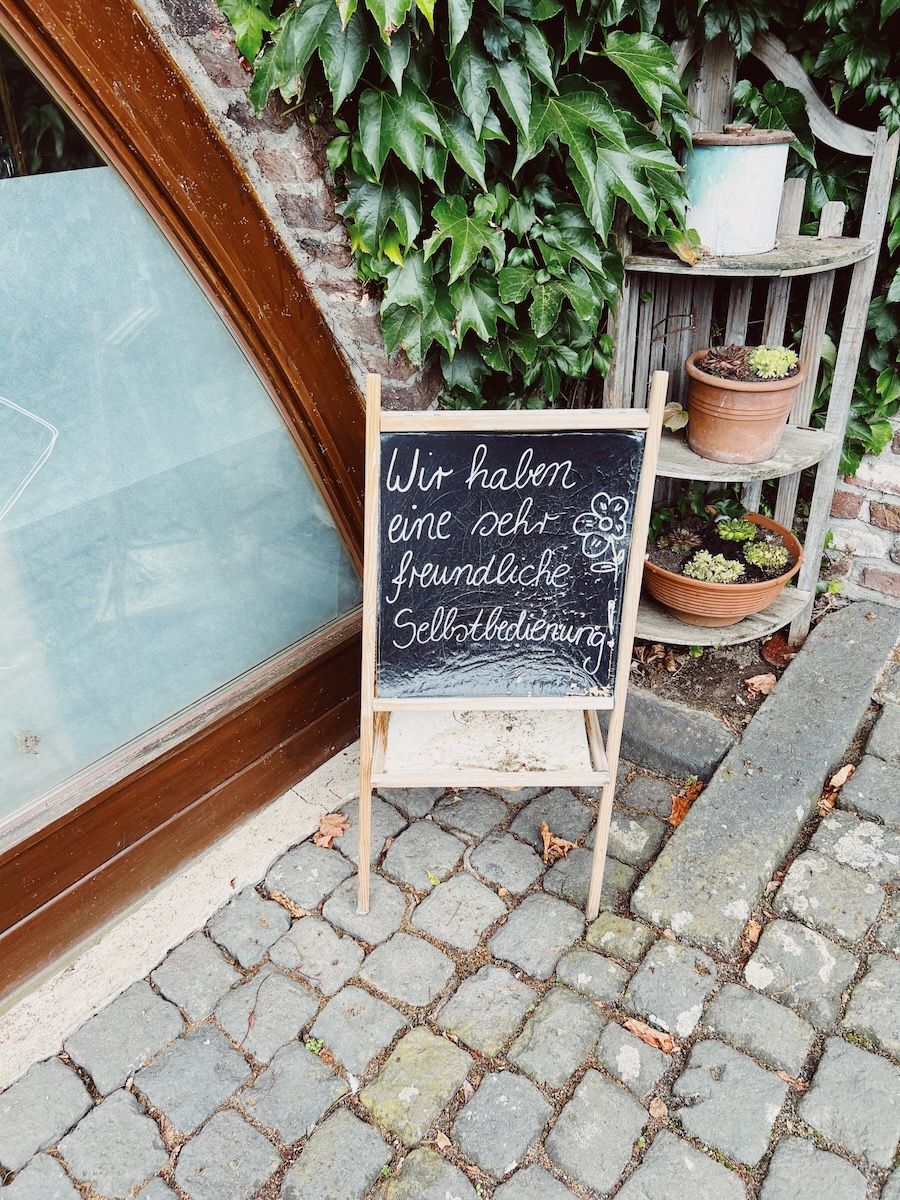 Wir haben
eine sehr
freundliche
Selbstbedienung!